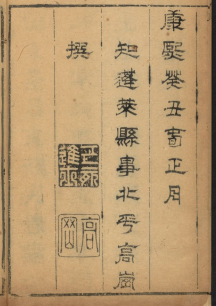 康熙癸丑春正月
知蓬萊縣事北平高崗
撰
高崗